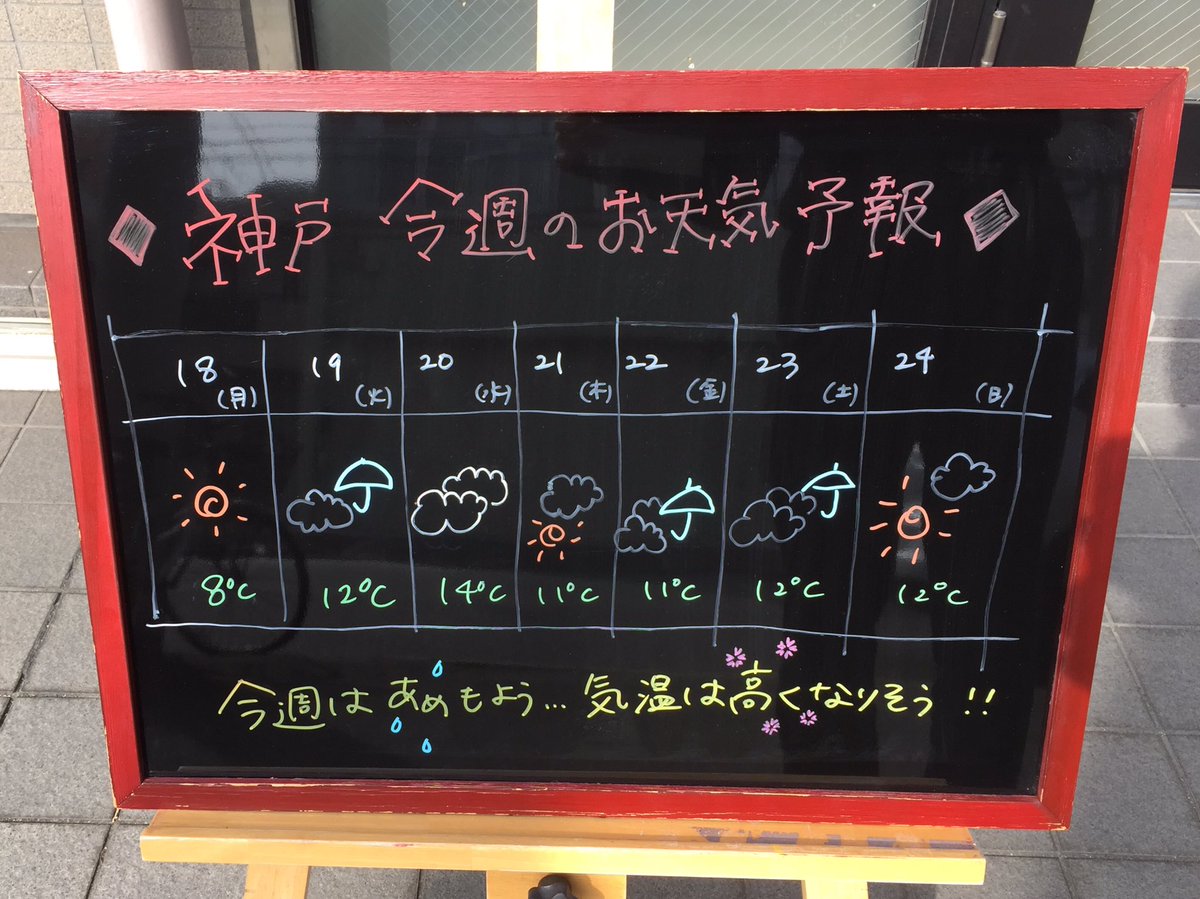 ◆ 神戸 今週のお天気予報 ◆
18 (月) 19 (火) 20 (水) 21 (木) 22 (金) 23 (土) 24 (日)
8℃ 12℃ 14℃ 11℃ 11℃ 12℃ 12℃
今週は あめもよう… 気温は高くなりそう !!